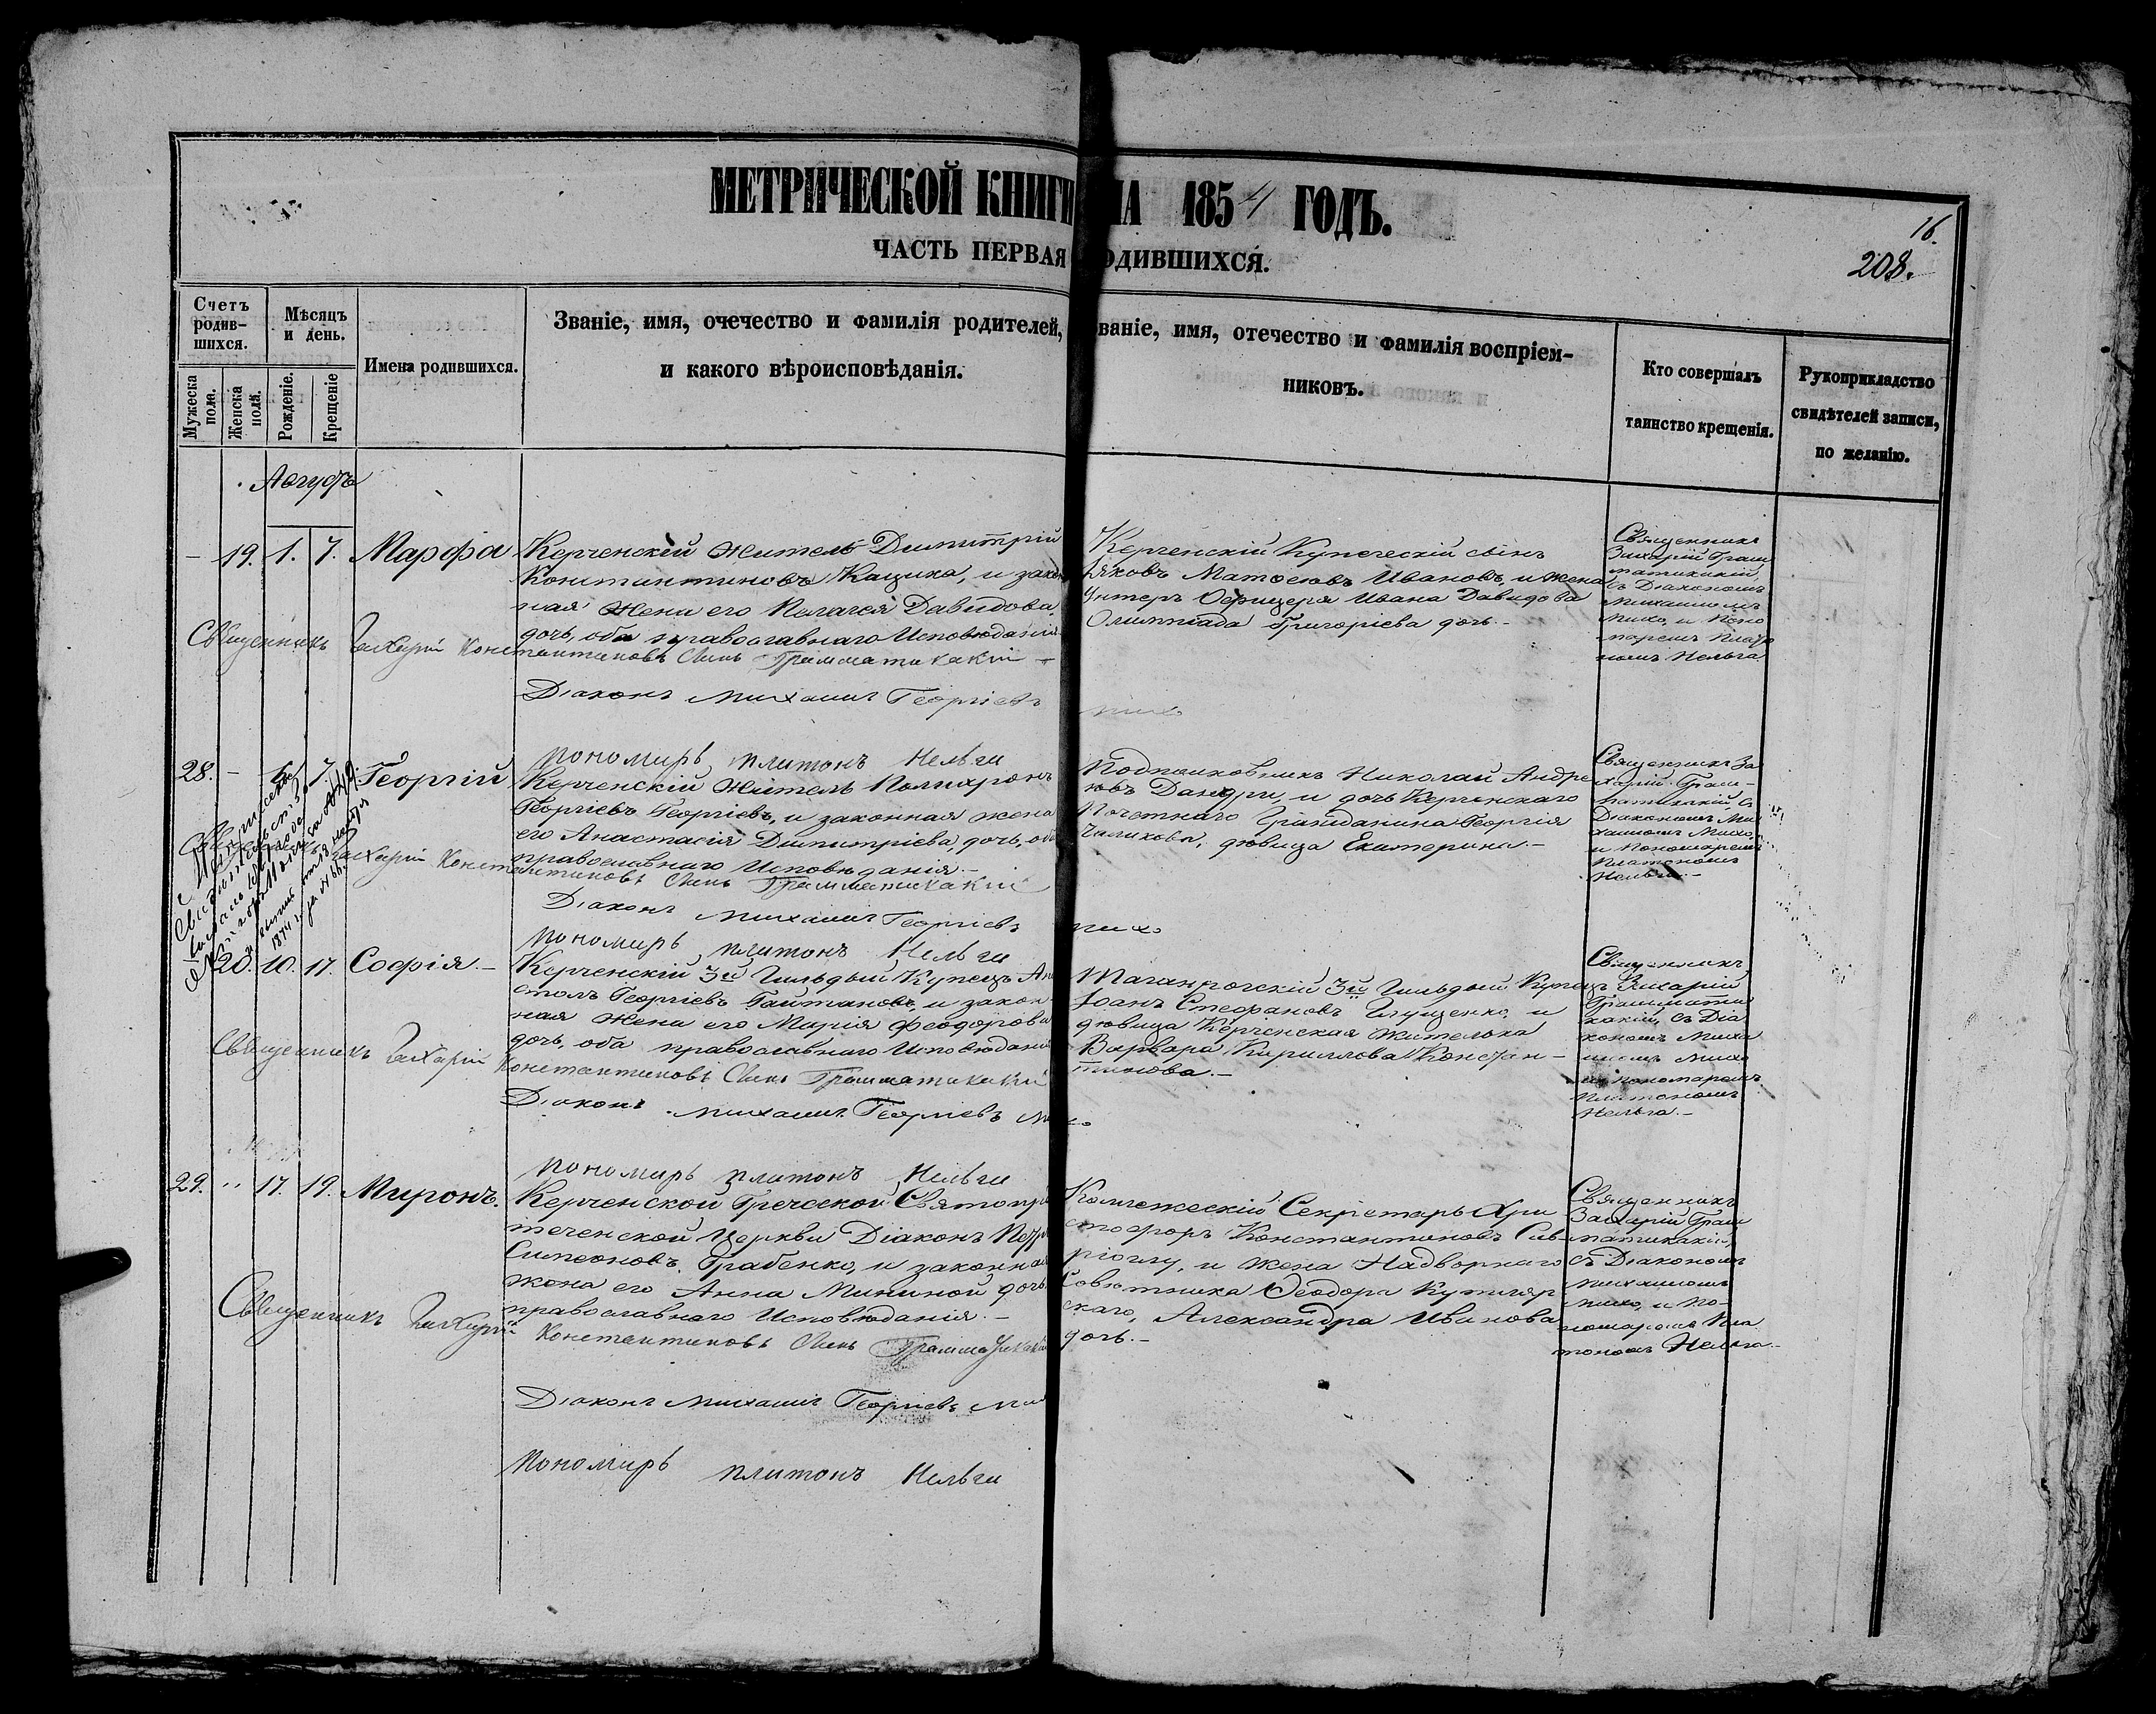 МЕТРИЧЕСКОЙ КНИГИ НА 1854 ГОДЪ.
ЧАСТЬ ПЕРВАЯ ОДИВШИХСЯ.
16.
208.
Счетъ родив-шихся.
Мужеска пола.
Женска пола.
Мѣсяцъ и день.
Рожденіе.
Крещеніе
Имена родившихся.
Званіе, имя, очечество и фамилія родителей,
и какого вѣроисповѣданія.
званіе, имя, отечество и фамилія воспріем-
никовъ.
Кто совершалъ
таинство крещенія.
Рукоприкладство
свидѣтелей записи,
по желанію.
Августъ
– 19. 1. 7. Марфа
Керченскій житель Димитрій
Константиновъ Кацика, и закон
ная жена его Пелагея Давидова
дочь, оба православнаго Исповѣданія
Керченскій Купеческій сынъ
Яковъ Матвеевъ Ивановъ, и жена
Унтеръ Офицера Ивана Давидова
Олимпіада Григоріева дочь –
Священникъ
Захарій Грам
матикакій,
съ Діакономъ
Михаиломъ
Михо, и Поно
маремъ Плато
номъ Нельга
Священникъ Захарій Константиновъ Сынъ Грамматикакій
Діаконъ Михаилъ Георгіевъ Михо
Пономарь Платонъ Нельга
28. – 6. 7. Георгій
Керченскій житель Полихронъ
Георгіевъ Георгіевъ, и законная жена
его Анастасія Димитріева, дочь, оба
православнаго Исповѣданія.–
Подполковникъ Николай Андре
евъ Дандри, и дочь Керченскаго
Почетнаго Гражданина Георгія
дѣвица Екатерина.–
Священникъ За
харій Грам–
матикакій, съ
Діакономъ Ми
хаиломъ Михо,
и Пономаремъ
Платономъ
Нельга.–
Священникъ Захарій Константиновъ Сынъ Грамматикакій
Діаконъ Михаилъ Георгіевъ Михо
Пономарь Платонъ Нельга
20. 10. 17. Софія.–
Керченскій 3й Гильдіи Купецъ
Георгіевъ Гайтановъ, и закон
ная жена его Марія Феодорова
дочь, оба православнаго Исповѣданія
Таганрогскій 3й Гильдіи Купецъ
Іоанъ Стефановъ Глущенко, и
дѣвица Керченская жителька
Варвара Кириллова Констан–
тинова.–
Священникъ
Захарій
Граммати
какій, съ Діа
кономъ Миха
иломъ Михо
и пономаремъ
Платономъ
Нельга.–
Священникъ Захарій Константиновъ Сынъ Грамматикакій
Діаконъ Михаилъ Георгіевъ Михо
Пономарь Платонъ Нельга
29. 17. 19. Миронъ.
Керченской Греческой Святопред
теченской Церкви Діаконъ Петръ
Симеоновъ Грабенко, и законная
жена его Анна Минина дочь
православнаго Исповѣданія.–
Коллежескій Секретарь Хри
стофоръ Константиновъ
и жена Надворнаго
Совѣтника Феодора
Александра Иванова
дочь.–
Священникъ
Захарій Грам
матикакій,
съ Діакономъ
Михаиломъ
Михо, и По–
номаремъ Пла
тономъ Нельга.–
Священникъ Захарій Константиновъ Сынъ Грамматикакій
Діаконъ Михаилъ Георгіевъ
Пономарь Платонъ Нельга